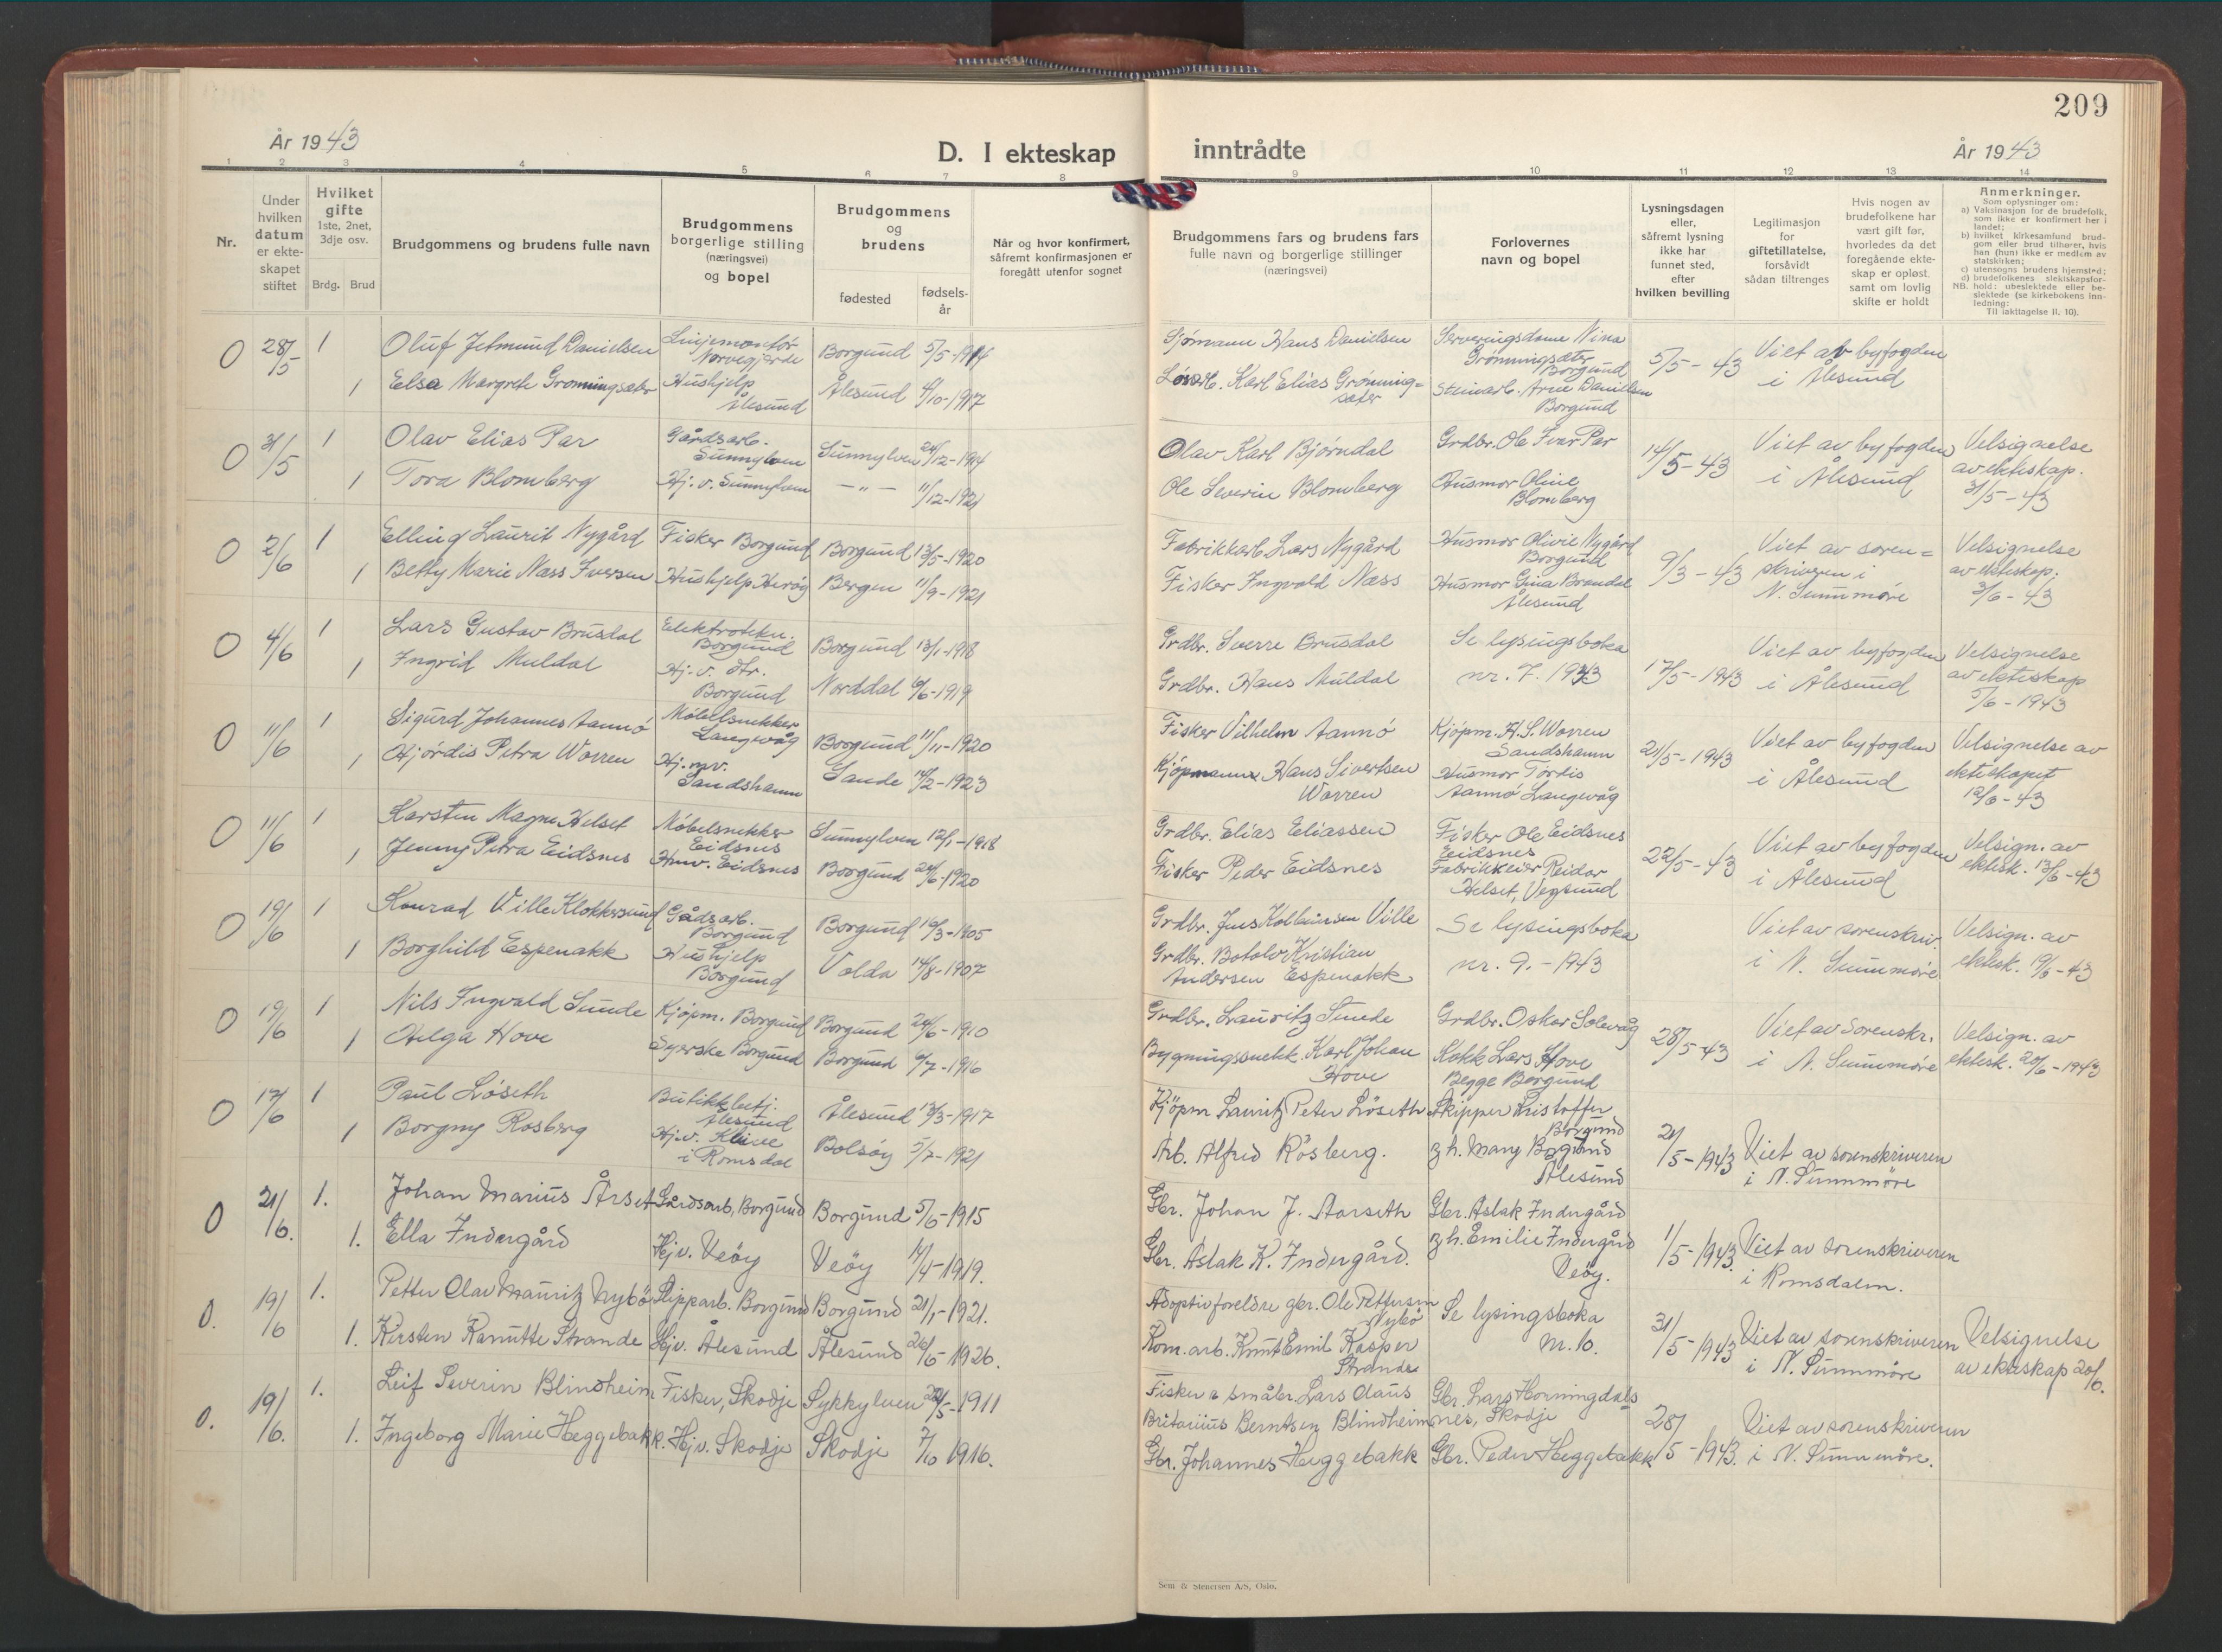 209
År 1943
D. I ekteskap
inntrådte
År 1943
1 2 3 4 5 6 7 8 9 10 11 12 13 14
Nr.
Under
hvilken
datum
er ekte-
skapet
stiftet
Hvilket
gifte
1ste, 2net,
3dje osv.
Brdg. Brud
Brudgommens og brudens fulle navn
Brudgommens
borgerlige stilling
(næringsvei)
og bopel
Brudgommens
og
brudens
fødested
fødsels-
år
Når og hvor konfirmert,
såfremt konfirmasjonen er
foregått utenfor sognet
Brudgommens fars og brudens fars
fulle navn og borgerlige stillinger
(næringsvei)
Forlovernes
navn og bopel
Lysningsdagen
eller,
såfremt lysning
ikke har
funnet sted,
efter
hvilken bevilling
Legitimasjon
for
giftetillatelse,
forsåvidt
sådan tiltrenges
Hvis nogen av
brudefolkene har
vært gift før,
hvorledes da det
foregående ekte-
skap er opløst,
samt om lovlig
skifte er holdt
Anmerkninger.
Som oplysninger om:
a) Vaksinasjon for de brudefolk,
som ikke er konfirmert her i
landet;
b) hvilket kirkesamfund brud-
gom eller brud tilhører, hvis
han (hun) ikke er medlem av
statskirken;
c) utensogns brudens hjemsted;
d) brudefolkenes slektskapsfor-
NB. hold: ubeslektede eller be-
slektede (se kirkebokens inn-
ledning:
Til iakttagelse II. 10).
0 28/5 1 Oluf Jetmund Danielsen Linjemontør
Norvegjerde Borgund 5/5-1914
1 Elsa Margrete Grønningsæter Hushjelp
Ålesund Ålesund 4/10-1917
Sjømann Hans Danielsen
Løsarb. Karl Elias Grønning=
sæter
Serveringsdame Nina
Grønningsæter
Borgund
Steinarb. Arne Danielsen
Borgund
5/5-43 Viet av byfogden
i Ålesund
0 31/5 1 Olav Elias Par Gårdsarb.
Sunnylven Sunnylven 24/12-1914
1 Tora Blomberg Hj. v. Sunnylven -"- 11/12-1921
Olav Karl Bjørndal
Ole Severin Blomberg
Grdbr. Ole Iver Par
Husmor Oline
Blomberg
14/5-43 Viet av byfogden
i Ålesund
Velsignelse
av ekteskap.
31/5-43
0 2/6 1 Elling Laurit Nygård Fisker Borgund Borgund 13/5-1920
1 Betty Marie Næss Iversen Hushjelp Herøy Bergen 11/9-1921
Fabrikkarb. Lars Nygård
Fisker Ingvald Næss
Husmor Olivie Nygård
Borgund
Husmor Gina Brandal
Ålesund
9/3-43 Viet av soren=
skriveren i
N. Sunnmøre
Velsignelse
av ekteskap.
3/6-43
0 4/6 1 Lars Gustav Brusdal Elektrotekn.
Borgund Borgund 13/1-1918
1 Ingrid Muldal Hj. v. Str.
Borgund Norddal 6/6-1919
Grdbr. Sverre Brusdal
Grdbr. Hans Muldal
Se lysingsboka
nr. 7. 1943
17/5-1943 Viet av byfogden
i Ålesund
Velsignelse
av ekteskap
5/6-1943
0 11/6 1 Sigurd Johannes Aannø Møbelsnekker
Langevåg Borgund 11/11-1920
1 Hjørdis Petra Worren Hj. mv.
Sandshamn Sande 14/2-1923
Fisker Vilhelm Aannø
Kjøpmann Hans Sivertsen
Worren
Kjøpm. H.S. Worren
Sandshamn
Husmor Tordis
Aannø Langevåg
21/5-1943 Viet av byfogden
i Ålesund
Velsignelse av
ekteskapet
12/6-43
0 11/6 1 Karsten Magne Helset Møbelsnekker
Eidsnes Sunnylven 12/1-1918
1 Jenny Petra Eidsnes Hmv. Eidsnes Borgund 24/6-1920
Grdbr. Elias Eliassen
Fisker Peder Eidsnes
Fisker Ole Eidsnes
Eidsnes
Fabrikkeier Reidar
Helset, Vegsund
22/5-43 Viet av byfogden
i Ålesund
Velsign. av
ektesk. 13/6-43
0 19/6 1 Konrad Ville Klokkersund Gådsarb.
Borgund Borgund 16/3-1905
1 Borghild Espenakk Hushjelp
Borgund Volda 14/8-1907
Grdbr. Jens Kolbeinsen Ville
Grdbr. Botolv Kristian
Andersen Espenakk
Se lysingsboka
nr. 9.-1943
Viet av sorenskriv.
i N. Sunnmøre
Velsign. av
ektesk. 19/6-43
0 19/6 1 Nils Ingvald Sunde Kjøpm. Borgund Borgund 24/6-1910
1 Helga Hove Syerske Borgund Borgund 6/7-1916
Grdbr. Lauritz Sunde
Bygningssnekk. Karl Johan
Hove
Grdbr. Oskar Solevåg
Kokk Lars Hove
Begge Borgund
28/5-43 Viet av Sorenskr.
i N. Sunnmøre
Velsign. av
ektesk. 20/6-1943
0 17/6 1 Paul Løseth Butikkbetj.
Ålesund Ålesund 13/3-1917
1 Borgny Rosberg Hj.v. Kleive
i Romsdal Bolsøy 5/7-1921
Kjøpm Lauritz Peter Løseth
Arb. Alfred Rösberg.
Skipper Kristoffer
Borgund
g.h. Mary Borgund
Ålesund
21/5-1943 Viet av sorenskriveren
i N. Sunnmøre
0 21/6. 1. Johan Marius Årset Gårdsarb, Borgund Borgund 5/6-1915
1. Ella Indergård Hjv. Veøy Veøy 14/4-1919.
Gbr. Johan J. Aarseth
Gbr. Aslak K. Indergård.
Gbr. Aslak Indergård
g.h. Emilie Indergård
Veøy.
1/5-1943. Viet av sorenskriveren
i Romsdalen.
0. 19/6 1. Petter Olav Mauritz Nybø Slipparb. Borgund Borgund 21/1-1921.
1. Kirsten Ranutte Strande Hjv. Ålesund Ålesund 26/5-1926.
Adoptivforeldre gbr. Ole Pettersen
Nybø
Kom.arb. Knut Emil Kasper
Strande
Se lysingsboka
nr. 10.
31/5-1943 Viet av sorenskriveren
i N. Sunnmøre
Velsignelse
av ekteskap 20/6.
0. 19/6. 1. Leif Severin Blindheim Fisker, Skodje Sykkylven 22/5-1911
1. Ingeborg Marie Heggebakk. Hjv. Skodje Skodje 7/10 1916.
Fisker & småbr. Lars Claus
Britanius Berntsen Blindheim
Gbr. Johannes Heggebakk
Gbr. Lars Horningdals
nes, Skodje
Gbr. Peder Heggebakk
28/5-1943. Viet av sorenskriveren
i N. Sunnmøre.
Sem & Stenersen A/S, Oslo.